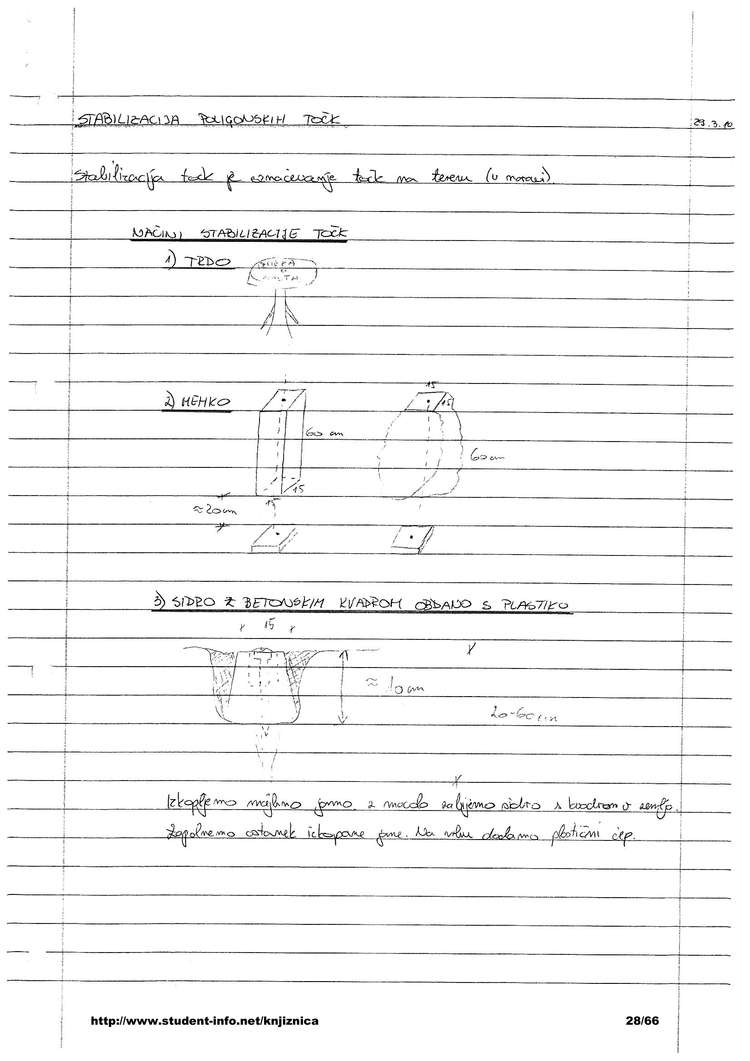 STABILIZACIJA POLIGONSKIH TOČK
29.3.10
Stabilizacija točk je označevanje točk na terenu (v naravi).
NAČINI STABILIZACIJE TOČK
1) TRDO
2) MEHKO
60 cm
15
15
≈20cm
15
15
60cm
3) SIDRO Z BETONSKIM KVADROM OBDANO S PLASTIKO
15
≈ 10cm
20-60cm
Izkopljemo majhno jamo, z macolo zabijemo sidro s kvadrom v zemljo.
Zapolnemo ostanek izkopane jame. Na vrhu dodamo plastični čep.
http://www.student-info.net/knjiznica
28/66